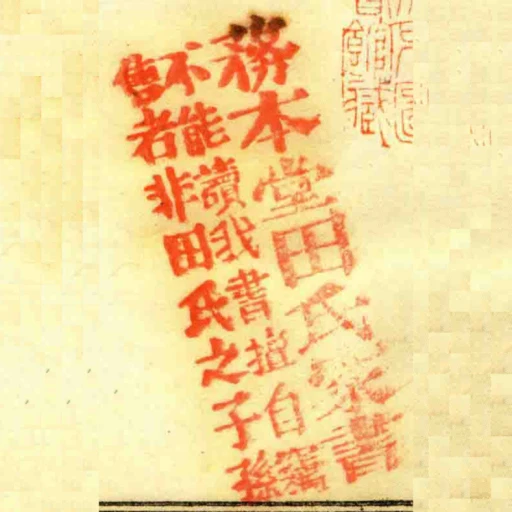 務本堂田氏家書
不能讀我書擅自竊
售者非田氏之子孫